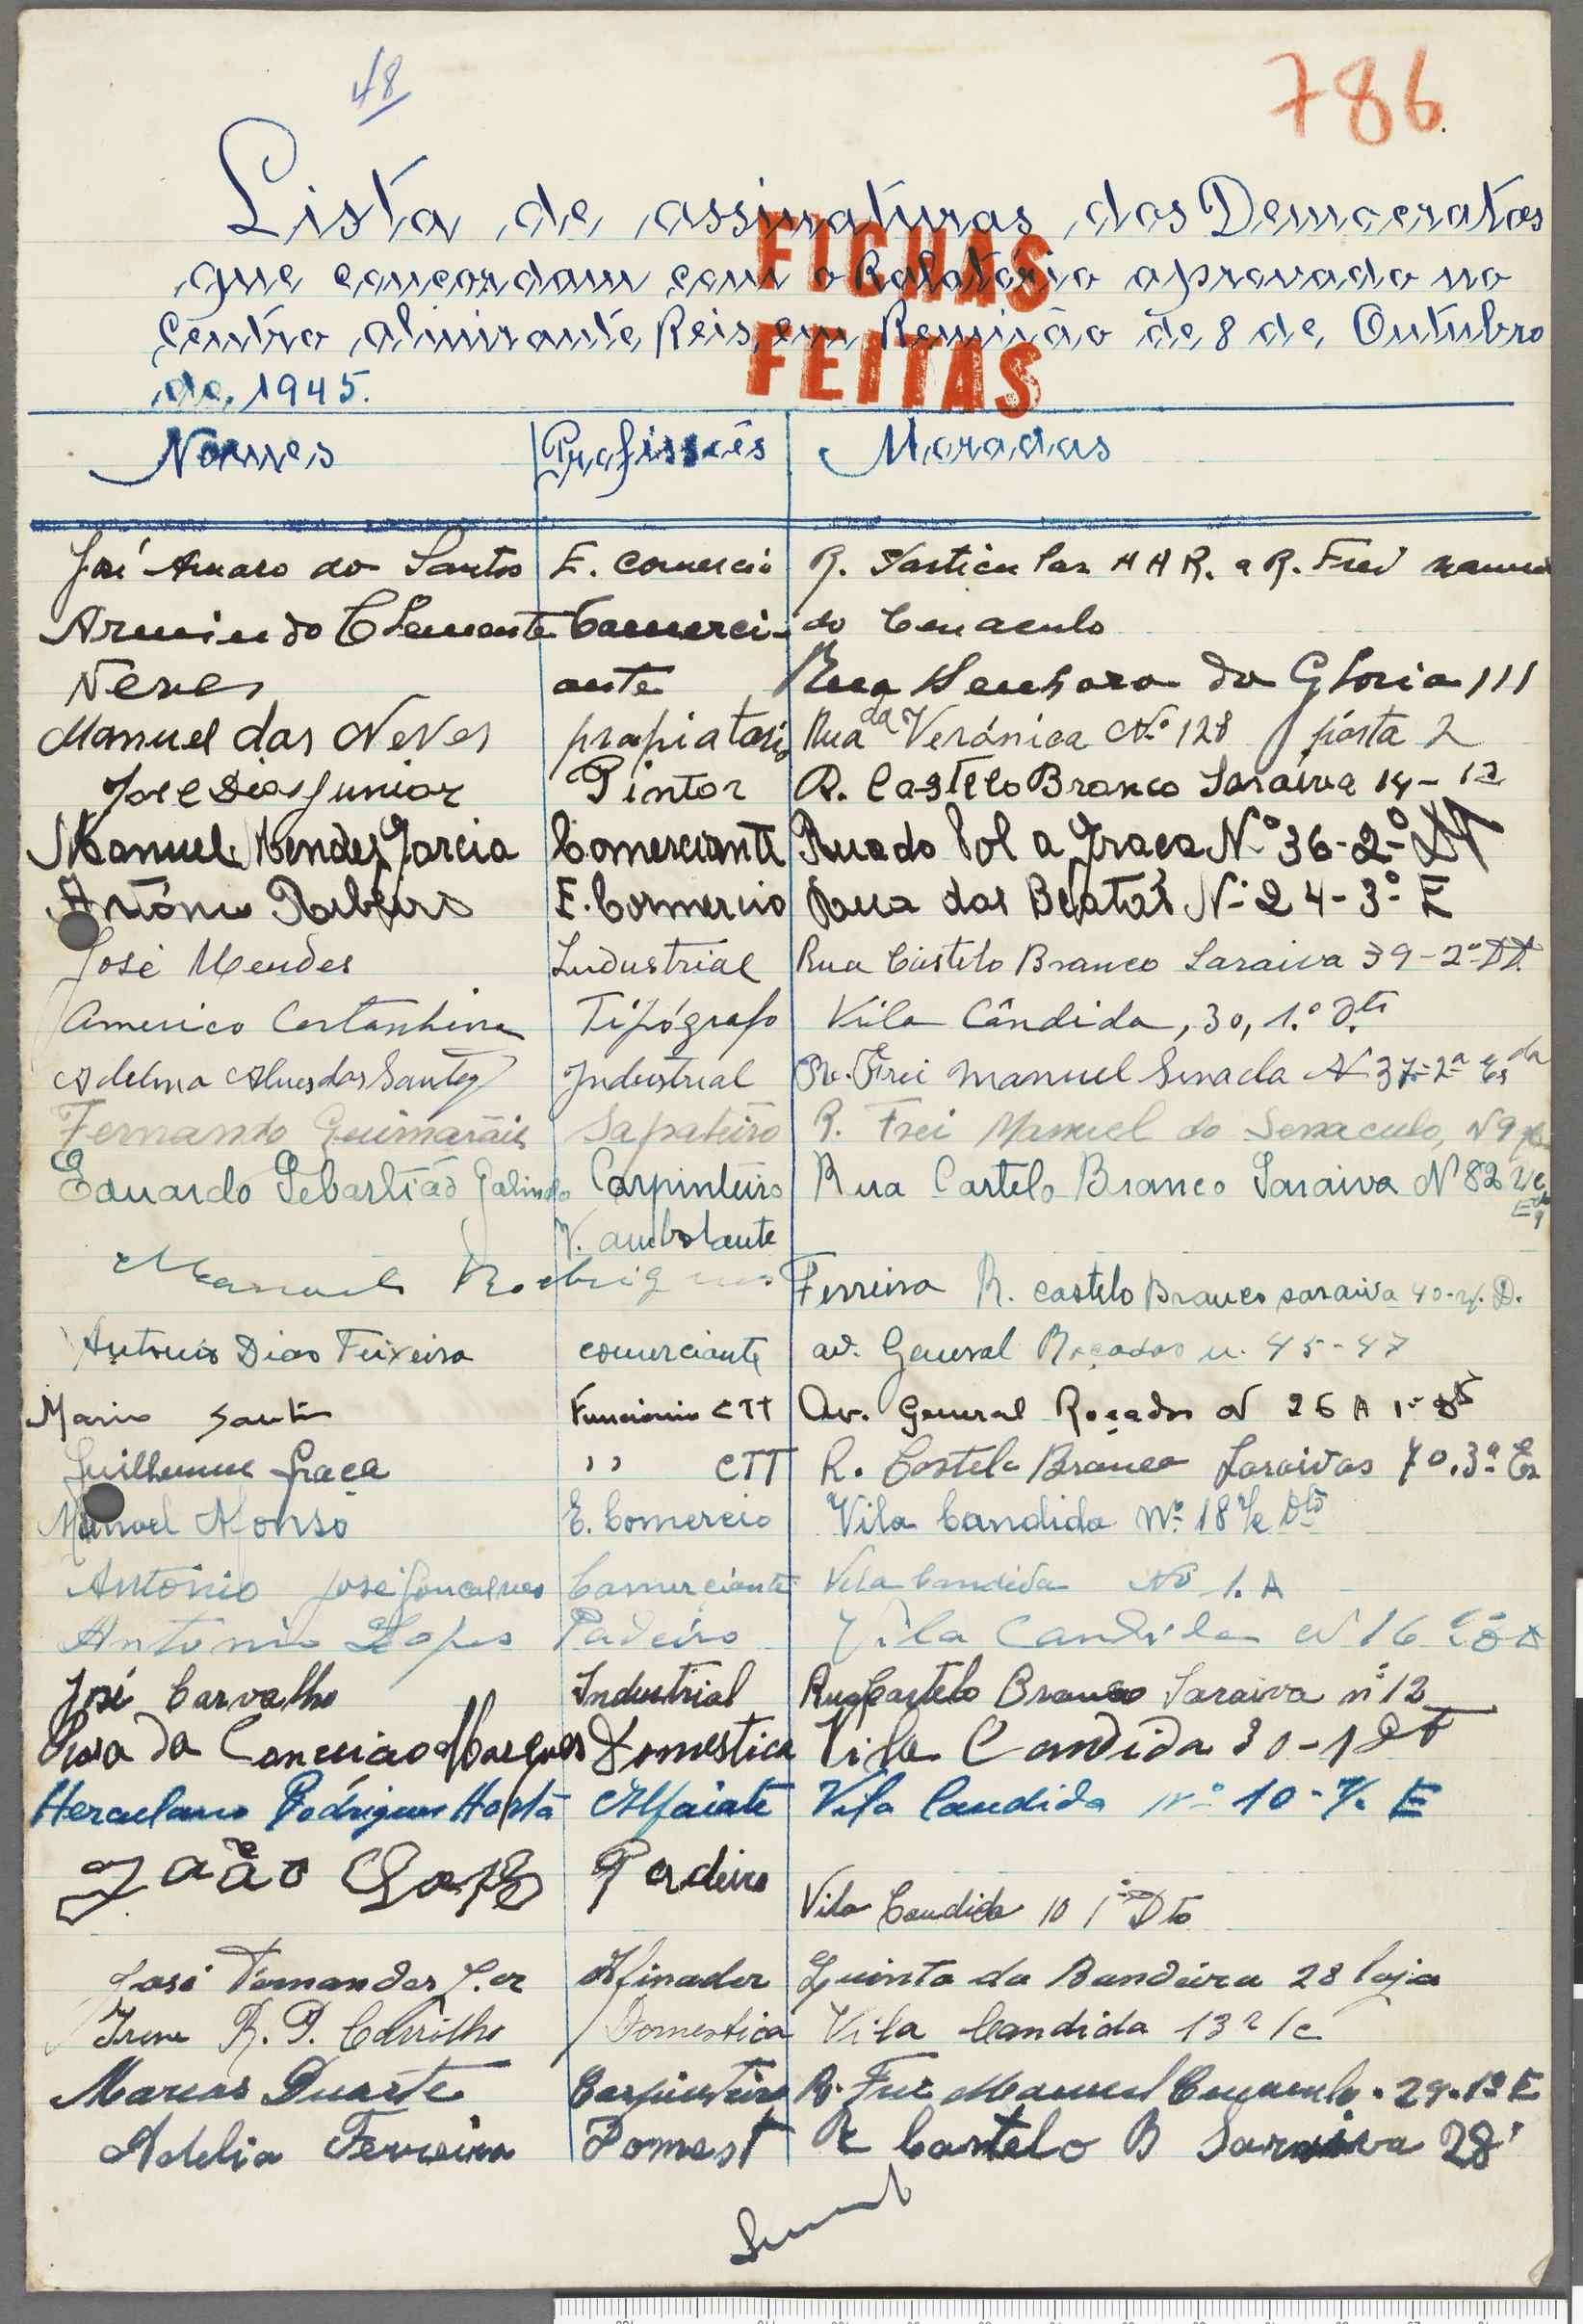 48
786.
Lista de assinaturas dos Democratas
FICHAS
que concordam com o Relatório aprovado no
Centro Almirante Reis, em Reunião de 8 de Outubro
FEITAS
de 1945.
Nomes Profissões Moradas
José Amaro do Santos E. Comercio R. Particular A A R. a R. Frei
Armindo Clemente Comerci- do Cenaculo
Neves ante Rua Senhora da Gloria 111
Manuel das Neves propiatario Rua da Verónica Nº 128 pórta 2
José Dias Junior Pintor R. Castelo Branco Saraiva 14-12
Manuel Mendes Garcia Comerciante Rua do Sol a Graça Nº 36-2º
António Ribeiro E. Commercio Rua das Beatas Nº 24-3º E
José Mendes Industrial Rua Castelo Branco Saraiva 39-2º Dt.
Americo Castanheira Tipógrafo Vila Cândida, 30, 1.º Dtº
Adelino Alves dos Santos Industrial R. Frei Manuel Senada Nº 37-2ª Esda
Fernando Guimarãis Sapateiro R. Frei Manuel do Senaculo, Nº 9
Eduardo Sebastião Galindo Carpinteiro Rua Castelo Branco Saraiva Nº 82
V. ambolante
Manuel Rodrigues Ferreira R. Castelo Branco saraiva 40-r/. D.
Antonio Dias Teixeira comerciante av. General Roçadas n. 45-47
Mario Santos Funcionario CTT Av. General Roçadas Nº 26 A 1º
Guilherme Graça ,, CTT R. Castelo Branco Saraivas 70.3º Es
Manoel Afonso E. Comercio Vila Candida Nº 18 r/c Dtº
António José Gonçalves Comerciante Vila Candida Nº 1. A
Antonio Lopes Padeiro Vila Candida Nº 16
José Carvalho Industrial Rua Castelo Branco Saraiva nº 12
Rosa da Conceicao Marques Domestica Vila Candida 30-1 Dt
Herculano Rodrigues Horta Alfaiate Vila Candida nº 10-r/c E
João Lopes Padeiro
Vila Candida 10 1º Dto
José Fernandes J.or Afinador Quinta da Bandeira 28 loja
Irene R. P. Carrilho Domestica Vila Candida 13 r/c
Marcos Duarte Carpinteiro R. Frei Manuel Cenaculo. 29.1º E
Adelia Ferreira Domest R Castelo B Saraiva 28